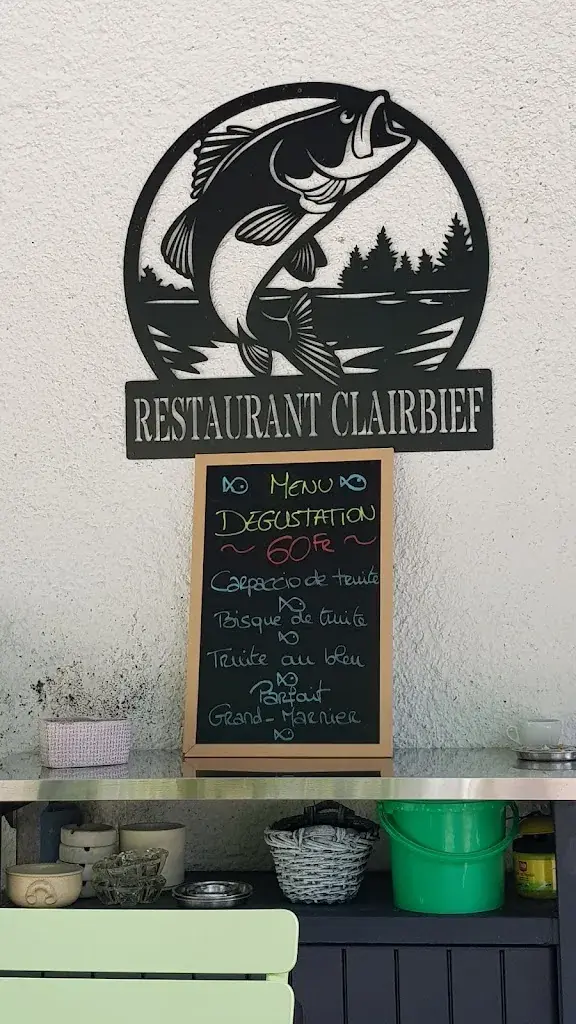 RESTAURANT CLAIRBIEF
MENU
DEGUSTATION
~ 60Fr ~
Carpaccio de truite
Bisque de truite
Truite au bleu
Parfait
Grand-Marnier